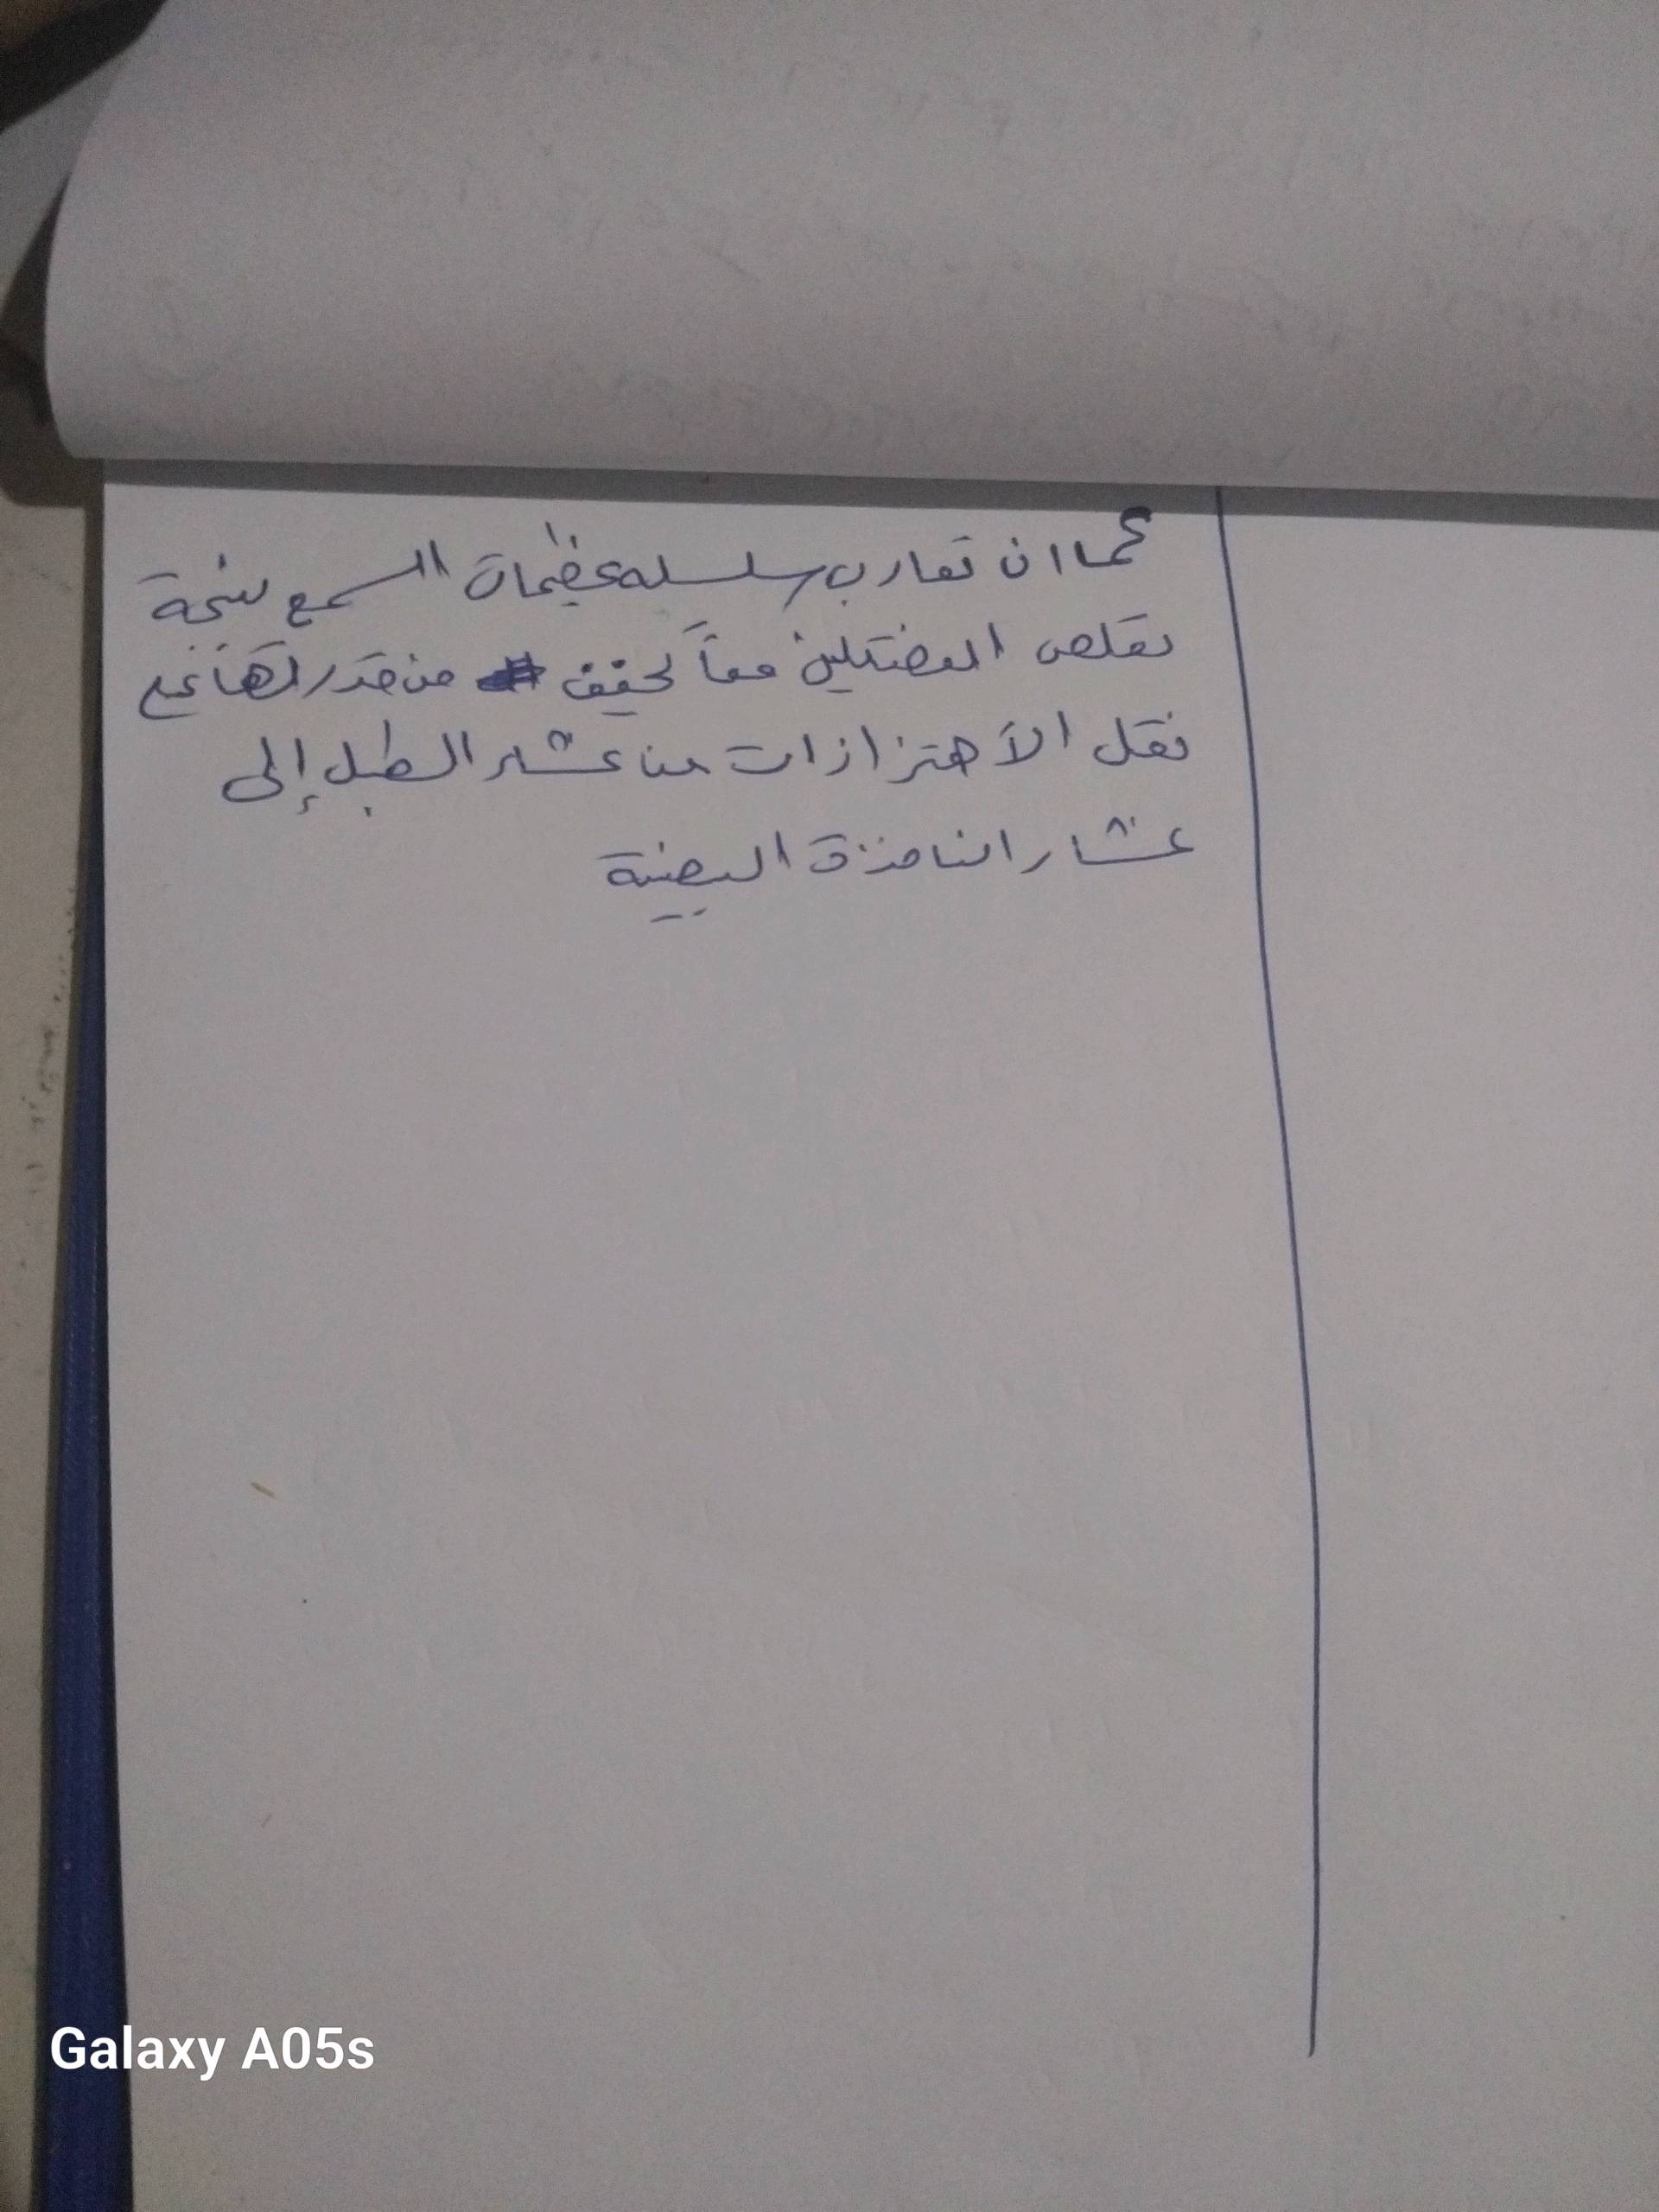 كما ان تقارب سلسله عظيمات السمع نتيجة
تقلص العضلتين معاً يخفف من قدرتها على
نقل الأهتزازات من غشاء الطبل إلى
غشار النافذة البيضية
Galaxy A05s